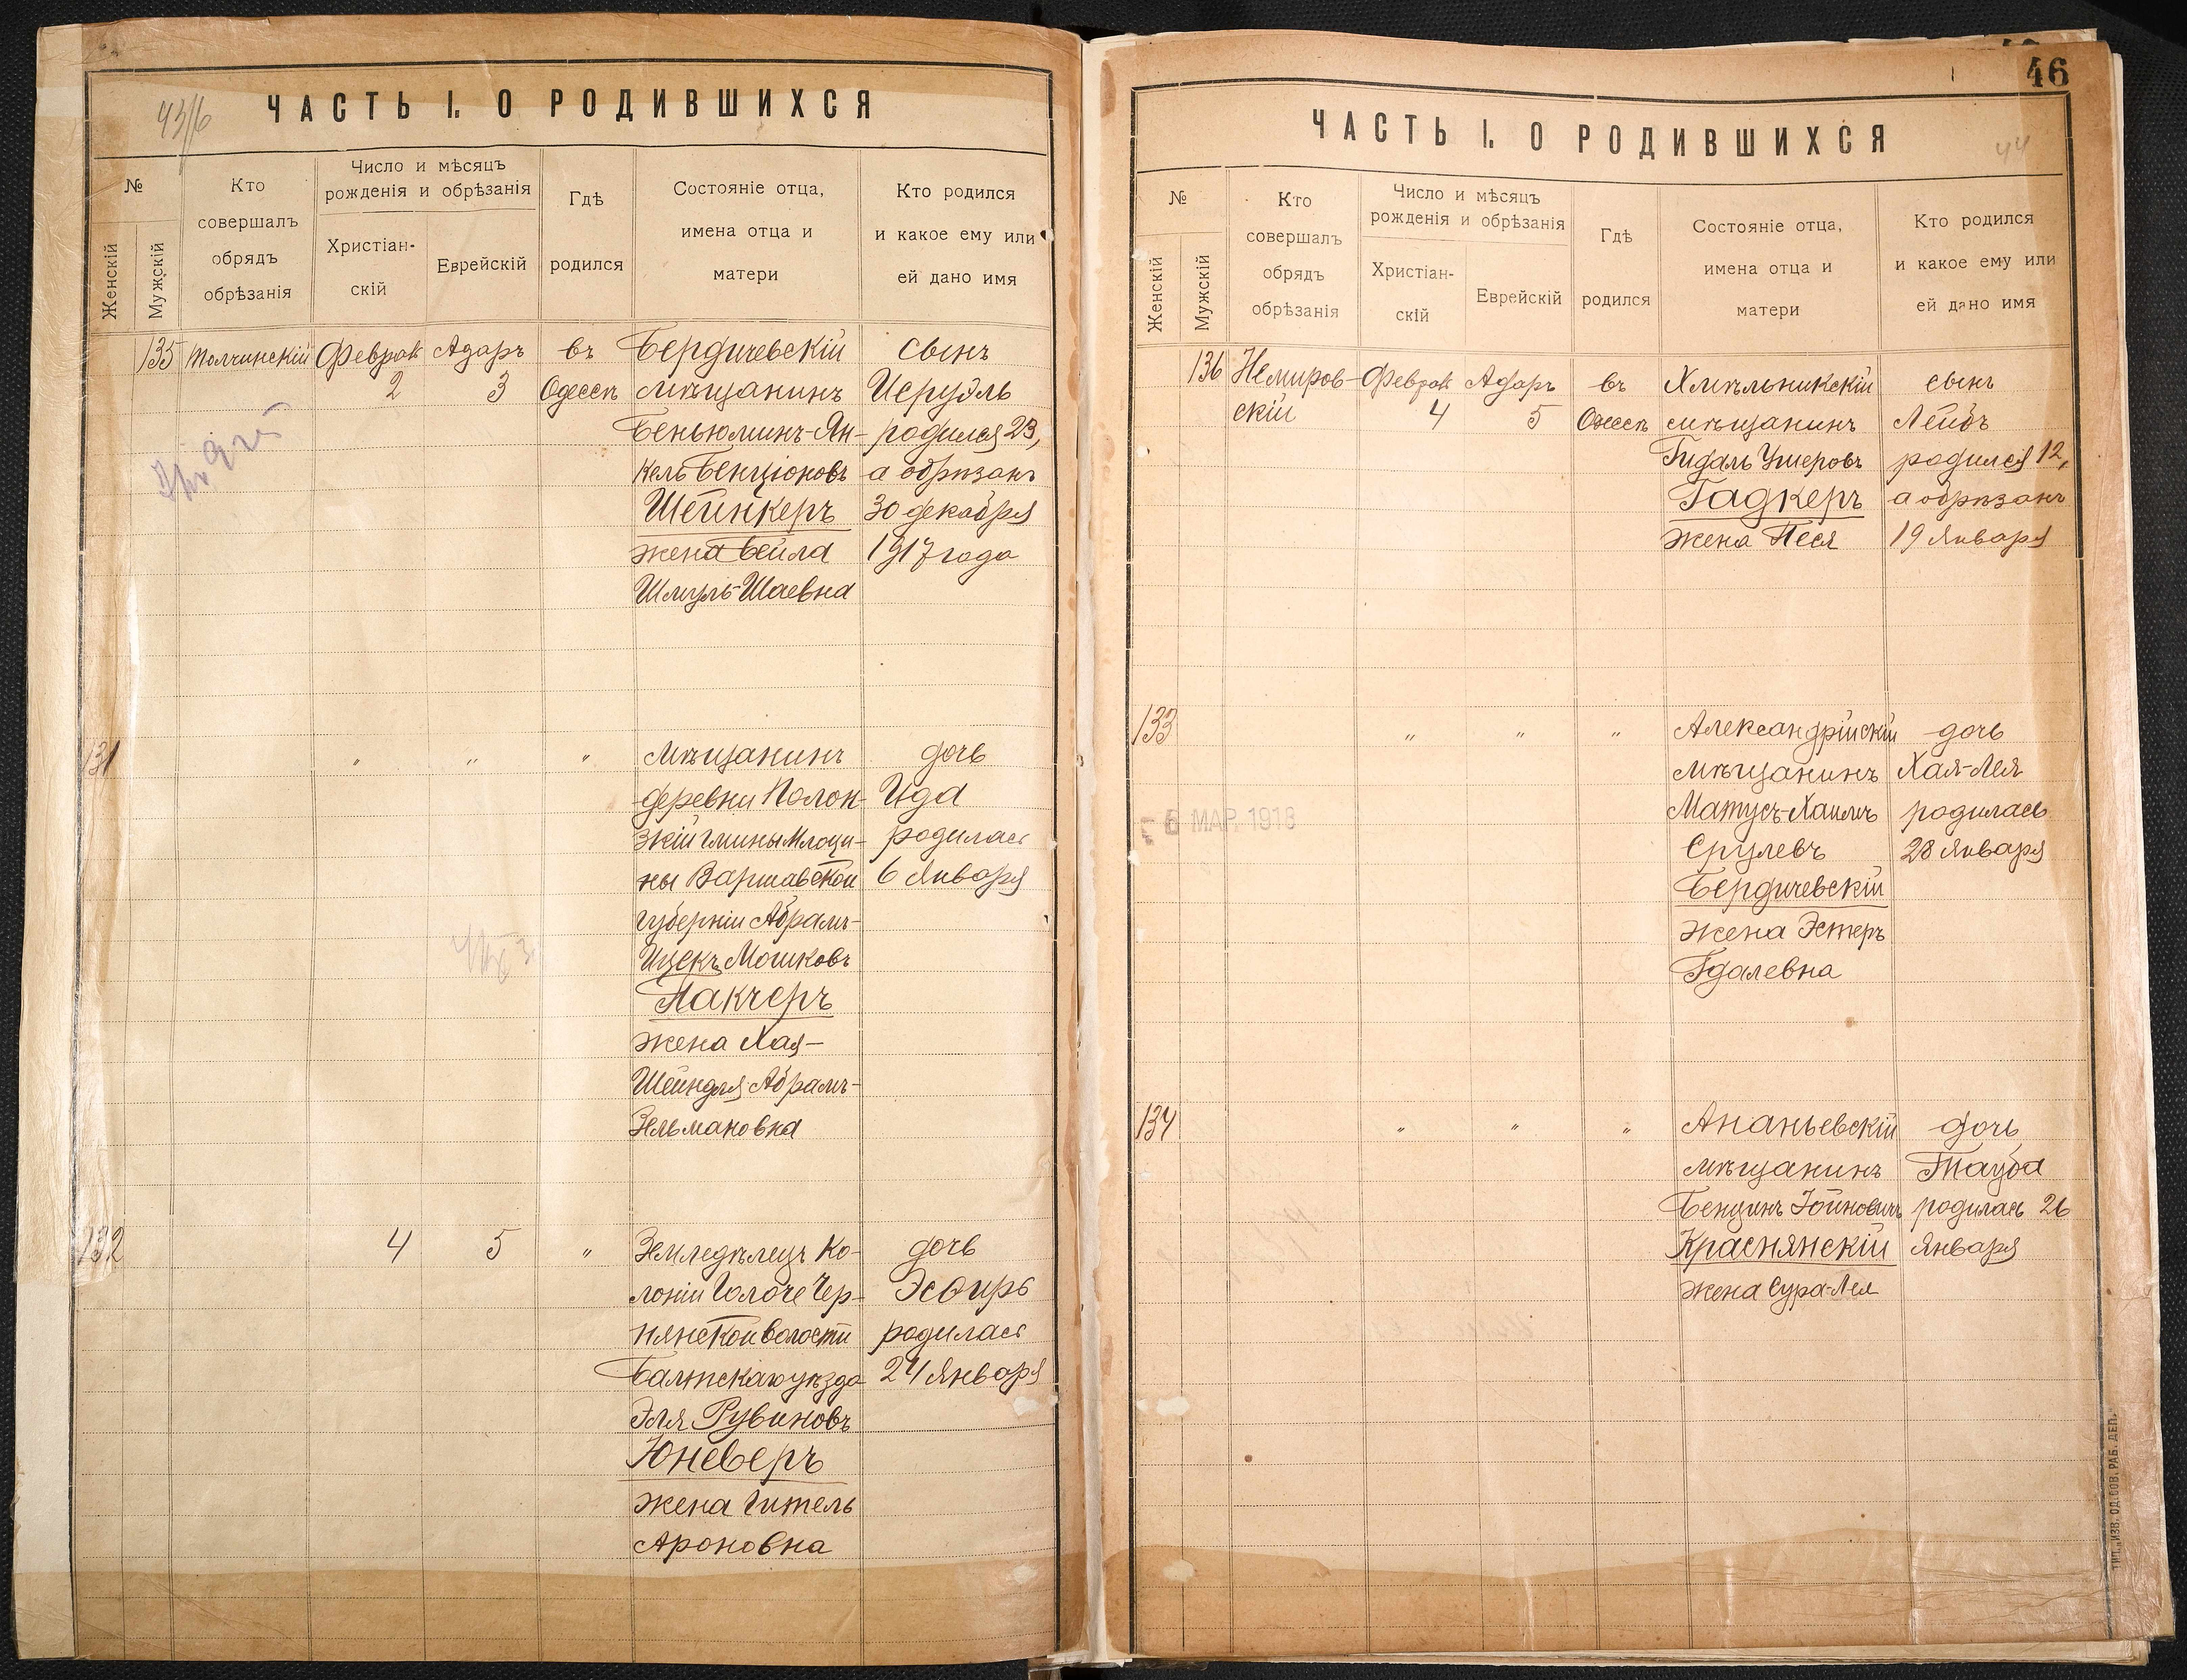 ЧАСТЬ I. О РОДИВШИХСЯ
№
Женскій
Мужскій
Кто
совершалъ
обрядъ
обрѣзанія
Число и мѣсяцъ
рожденія и обрѣзанія
Христіан-
скій
Еврейскій
Гдѣ
родился
Состояніе отца,
имена отца и
матери
Кто родился
и какое ему или
ей дано имя
135
Толчинскій
Феврал
2
Адаръ
3
въ
Одессѣ
Бердичевскій
мѣщанинъ
Беньюминъ-Ян-
кель Бенціоновъ
Шейнкеръ
жена Бейла
Шмуль-Шаевна
сынъ
Исруэль
родился 23,
а обрѣзанъ
30 декабря
1917 года
131
"
"
"
мѣщанинъ
деревни Полон-
зкій гмины Млоци-
ны Варшавской
губерніи Абрамъ-
Ицекъ Мошковъ
Пакчеръ
жена Хая-
Шейндля Абрамъ-
Зельмановна
дочь
Ида
родилась
6 Января
132
4
5
"
Земледѣлецъ Ко-
лоніи Голоче Чер-
нянской волости
Балтскаго уѣзда
Эля Рувиновъ
Юневеръ
жена Гитель
Ароновна
дочь
Эсѳирь
родилась
24 Января
46
44
ЧАСТЬ I. О РОДИВШИХСЯ
№
Женскій
Мужскій
Кто
совершалъ
обрядъ
обрѣзанія
Число и мѣсяцъ
рожденія и обрѣзанія
Христіан-
скій
Еврейскій
Гдѣ
родился
Состояніе отца,
имена отца и
матери
Кто родился
и какое ему или
ей дано имя
136
Немиров-
скій
Феврал
4
Адаръ
5
въ
Одессѣ
Хмѣльникскій
мѣщанинъ
Гидаль Ушеровъ
Гадкеръ
жена Песя
сынъ
Лейбъ
родился 12,
а обрѣзанъ
19 Января
133
"
"
"
Александрійскій
мѣщанинъ
Матусъ-Хаимъ
Срулевъ
Бердичевскій
жена Эстеръ
Гдалевна
дочь
Хая-Лея
родилась
28 Января
6 МАР. 1918
134
"
"
"
Ананьевскій
мѣщанинъ
Бенцинъ Іойновичъ
Краснянскій
жена Сура-Лея
дочь
Тауба
родилась 26
Января
ТИП. „ИЗВ. ОД. СОВ. РАБ. ДЕП.“